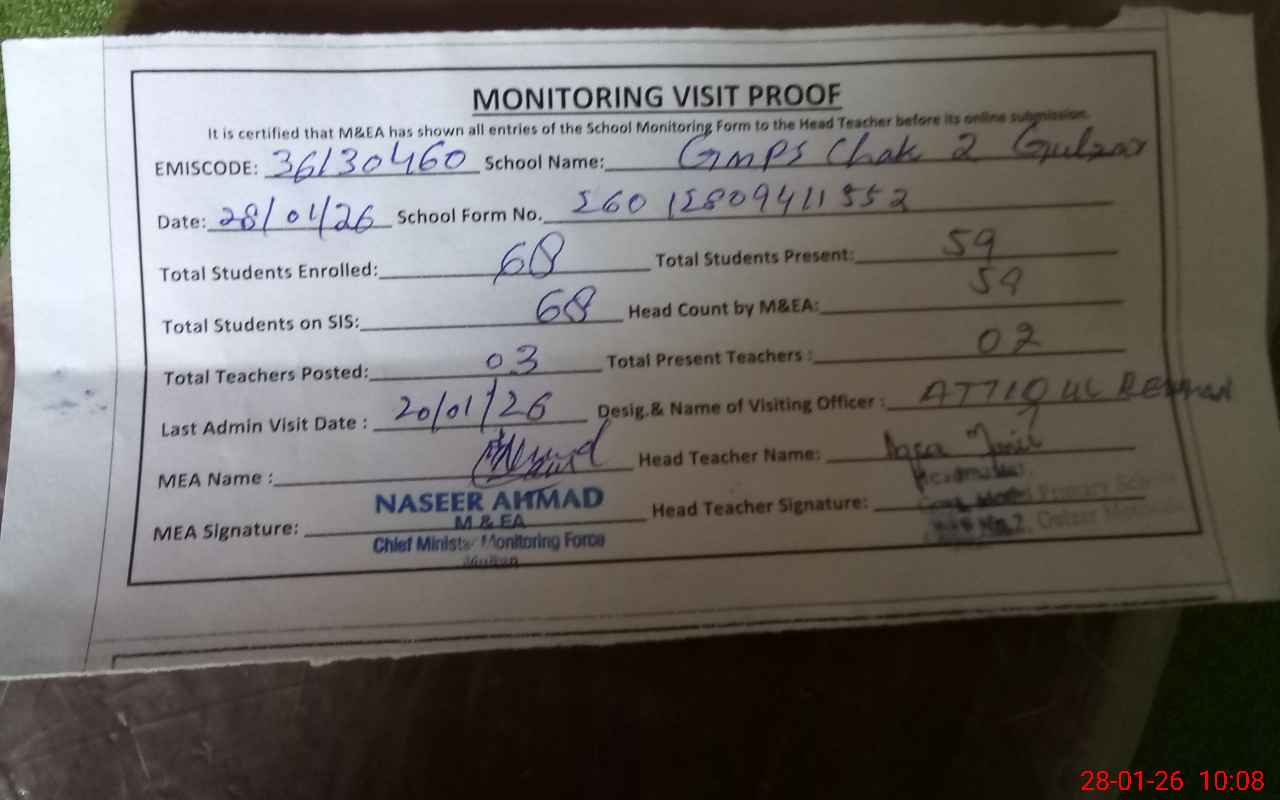 MONITORING VISIT PROOF
It is certified that M&EA has shown all entries of the School Monitoring Form to the Head Teacher before its online submission.
EMISCODE: 36130460 School Name: GMPS Chak 2 Gulzar
Date: 28/01/26 School Form No. 26012809411552
Total Students Enrolled: 68 Total Students Present: 59
Total Students on SIS: 68 Head Count by M&EA: 59
Total Teachers Posted: 03 Total Present Teachers : 02
Last Admin Visit Date : 20/01/26 Desig.& Name of Visiting Officer : ATTIQ UL REHMAN
MEA Name : Head Teacher Name:
NASEER AHMAD
MEA Signature: M & EA Head Teacher Signature:
Chief Minister Monitoring Force
Primary School
28-01-26 10:08